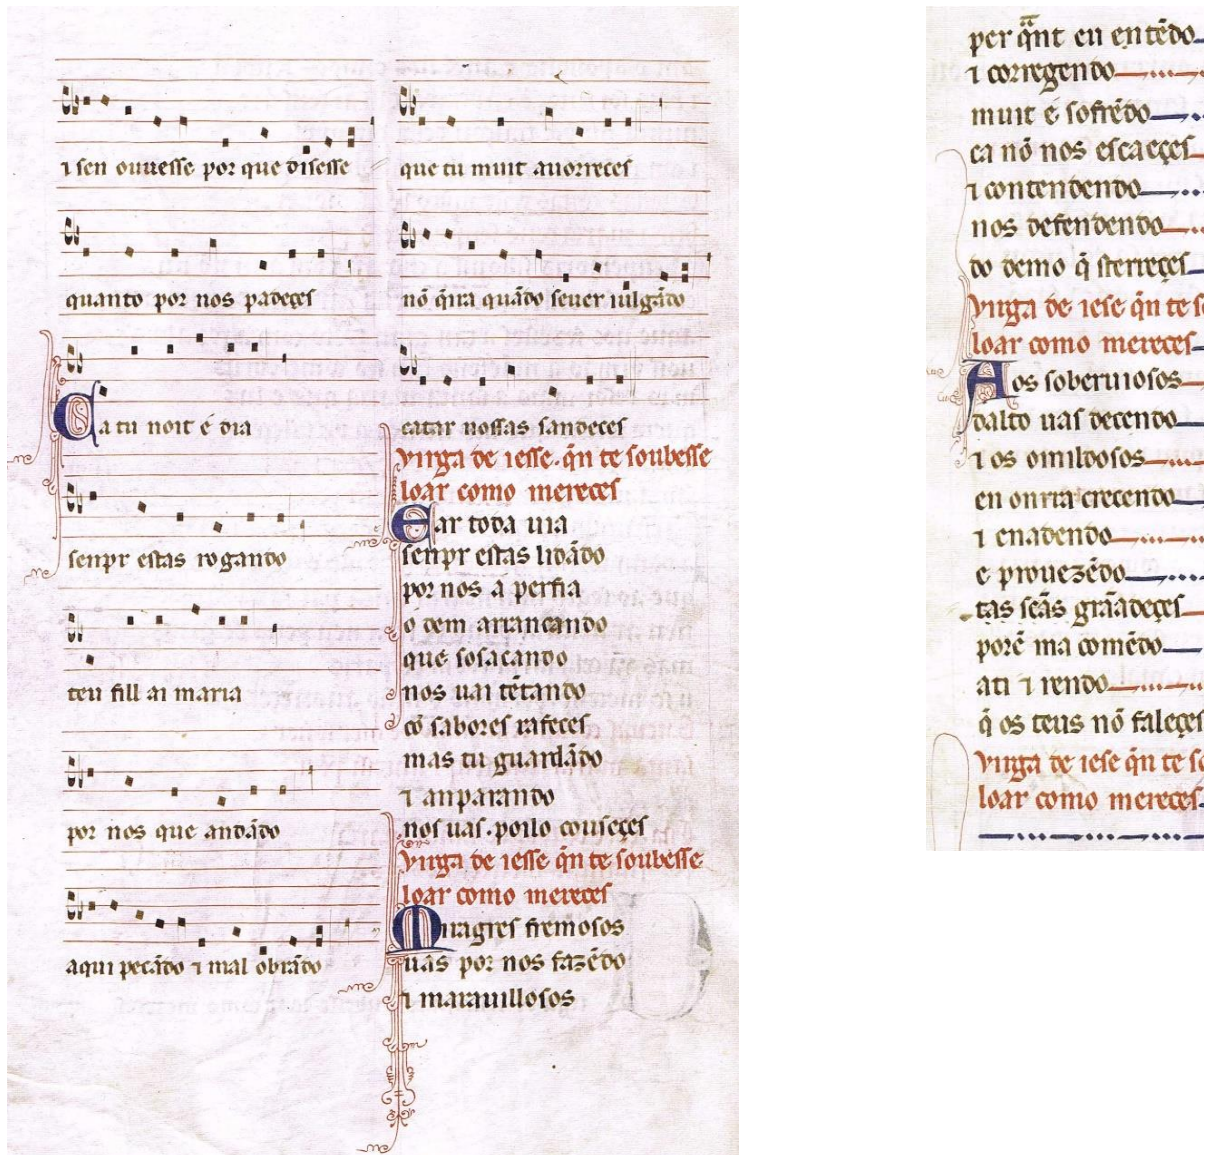 ⁊ sen ouuesse por que disesse
quanto por nos padeçes
Ca tu noit é dia
senpr estas rogando
teu fill ai maria
por nos que andãdo
aqui pecãdo ⁊ mal obrãdo
que tu muit auorreces
nõ q̃ira quãdo seuer iulgãdo
catar uossas sandeces
Virga de iesse. q̃n te soubesse
loar como mereces
Ear toda uia
senpr estas lidãdo
por nos a perfia
o dem arrancando
que sosacando
nos uai tẽtando
cõ sabores rafeces
mas tu guardãdo
⁊ anparando
nos uas. poilo couseçes
Virga de iesse q̃n te soubesse
loar como mereces
Miragres fremosos
uas por nos fazẽdo
⁊ marauillosos
per q̃nt eu entẽdo
⁊ corregendo
muit e sofrẽdo
ca nõ nos escaeçes
⁊ contendendo
nos defendendo
do demo q̃ sterreçes
Virga de iese q̃n te s
loar como mereces
Aos soberuiosos
dalto uas decendo
⁊ os omildosos
en onrra crecendo
⁊ enadendo
e prouezẽdo
tas sc̃as grãadeçes
porẽ ma comẽdo
ati ⁊ rendo
q̃ os teus nõ faleçes
Virga de iese q̃n te so
loar como mereces